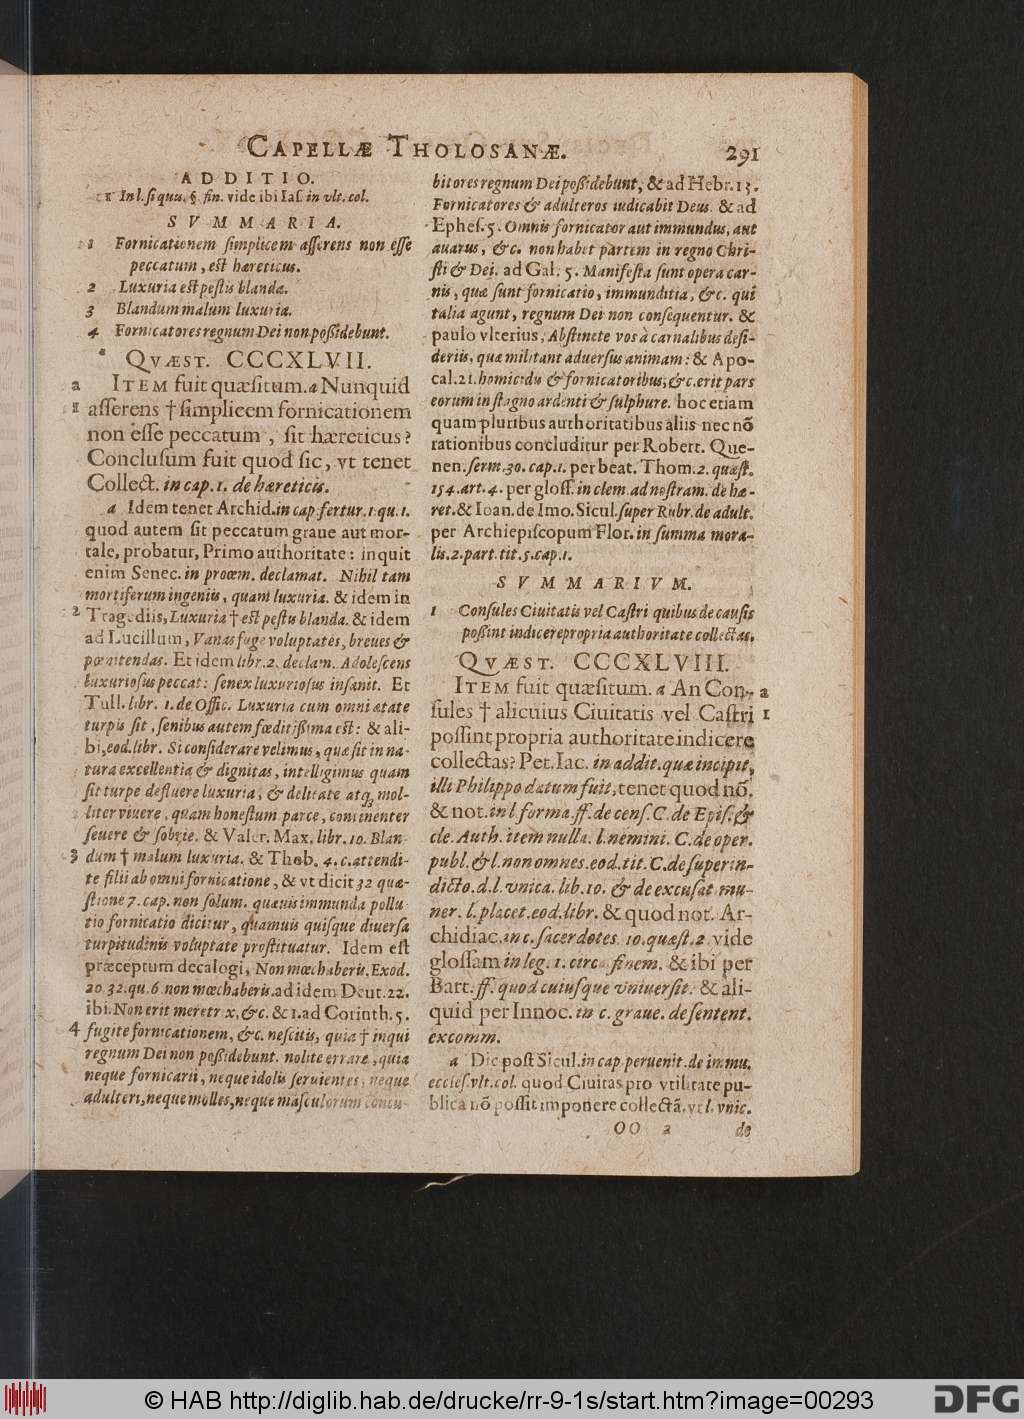 CAPELLÆ THOLOSANÆ. 291
ADDITIO.
In l. si qua. §. fin. vide ibi Ias. in vlt. col.
SVMMARIA.
1 Fornicationem simplicem asserens non esse
peccatum, est hæreticus.
2 Luxuria est pestis blanda.
3 Blandum malum luxuria.
4 Fornicatores regnum Dei non possidebunt.
QVÆST. CCCXLVII.
a ITEM fuit quæsitum. a Nunquid
1 asserens † simplicem fornicationem
non esse peccatum, sit hæreticus?
Conclusum fuit quod sic, vt tenet
Collect. in cap. 1. de hæreticis.
a Idem tenet Archid. in cap. fertur. 1. qu. 1.
quod autem sit peccatum graue aut mor-
tale, probatur, Primo authoritate: inquit
enim Senec. in proœm. declamat. Nihil tam
mortiferum ingeniis, quam luxuria. & idem in
2 Tragediis, Luxuria † est pestis blanda. & idem
ad Lucillum, Vanas fuge voluptates, breues &
pœnitendas. Et idem libr. 2. declam. Adolescens
luxuriosus peccat: senex luxuriosus insanit. Et
Tull. libr. 1. de Offic. Luxuria cum omni ætate
turpis sit, senibus autem fœditissima est: & ali-
bi, eod. libr. Si considerare velimus, quæ sit in na-
tura excellentia & dignitas, intelligimus quam
sit turpe defluere luxuria, & delicate atq; mol-
liter viuere, quam honestum parce, continenter
seuere & sobrie. & Valer. Max. libr. 10. Blan-
3 dum † malum luxuria. & Thob. 4. c. attendi-
te filii ab omni fornicatione, & vt dicit 32 quæ-
stione 7. cap. non solum. quæuis immunda pollu
tio fornicatio dicitur, quamuis quisque diuersa
turpitudinis voluptate prostituatur. Idem est
præceptum decalogi, Non mœchaberis, Exod.
20. 32. qu. 6. non mœchaberis. ad idem Deut. 22.
ibi. Non erit meretrix, &c. & 1. ad Corinth. 5.
4 fugite fornicationem, &c. nescitis, quia † inqui
regnum Dei non possidebunt. nolite errare, quia
neque fornicarii, neque idolis seruientes, neque
adulteri, neque molles, neque masculorum concu-
bitores regnum Dei possidebunt, & ad Hebr. 13.
Fornicatores & adulteros iudicabit Deus. & ad
Ephes. 5. Omnis fornicator aut immundus, aut
auarus, &c. non habet partem in regno Chri-
sti & Dei. ad Gal. 5. Manifesta sunt opera car-
nis, quæ sunt fornicatio, immunditia, &c. qui
talia agunt, regnum Dei non consequentur. &
paulo vlterius, Abstinete vos à carnalibus desi-
deriis, quæ militant aduersus animam: & Apo-
cal. 21. homicidis & fornicatoribus, &c. erit pars
eorum in stagno ardenti & sulphure. hoc etiam
quam pluribus authoritatibus aliis nec nõ
rationibus concluditur per Robert. Que-
nen. serm. 30. cap. 1. per beat. Thom. 2. quæst.
154. art. 4. per gloss. in clem. ad nostram. de hæ-
ret. & Ioan. de Imo. Sicul. super Rubr. de adult.
per Archiepiscopum Flor. in summa mora-
lis. 2. part. tit. 5. cap. 1.
SVMMARIVM.
1 Consules Ciuitatis vel Castri quibus de causis
possint indicere propria authoritate collectas.
QVÆST. CCCXLVIII.
ITEM fuit quæsitum. a An Con- a
sules † alicuius Ciuitatis vel Castri 1
possint propria authoritate indicere
collectas? Pet. Iac. in addit. quæ incipit,
illi Philippo datum fuit, tenet quod nõ.
& not. in l. forma. ff. de cens. C. de Epis. &
cle. Auth. item nulla. l. nemini. C. de oper.
publ. & l. non omnes. eod. tit. C. de superin-
dicto. d. l. vnica. lib. 10. & de excusat. mu-
ner. l. placet. eod. libr. & quod not. Ar-
chidiac. in c. sacerdotes. 10. quæst. 2. vide
glossam in leg. 1. circa finem. & ibi per
Bart. ff. quod cuiusque vniuersit. & ali-
quid per Innoc. in c. graue. de sentent.
excomm.
a Dic post Sicul. in cap. peruenit. de immu.
eccles. vlt. col. quod Ciuitas pro vtilitate pu-
blica nõ possit imponere collectã. vt l. vnic.
OO 2 de
© HAB http://diglib.hab.de/drucke/rr-9-1s/start.htm?image=00293
DFG